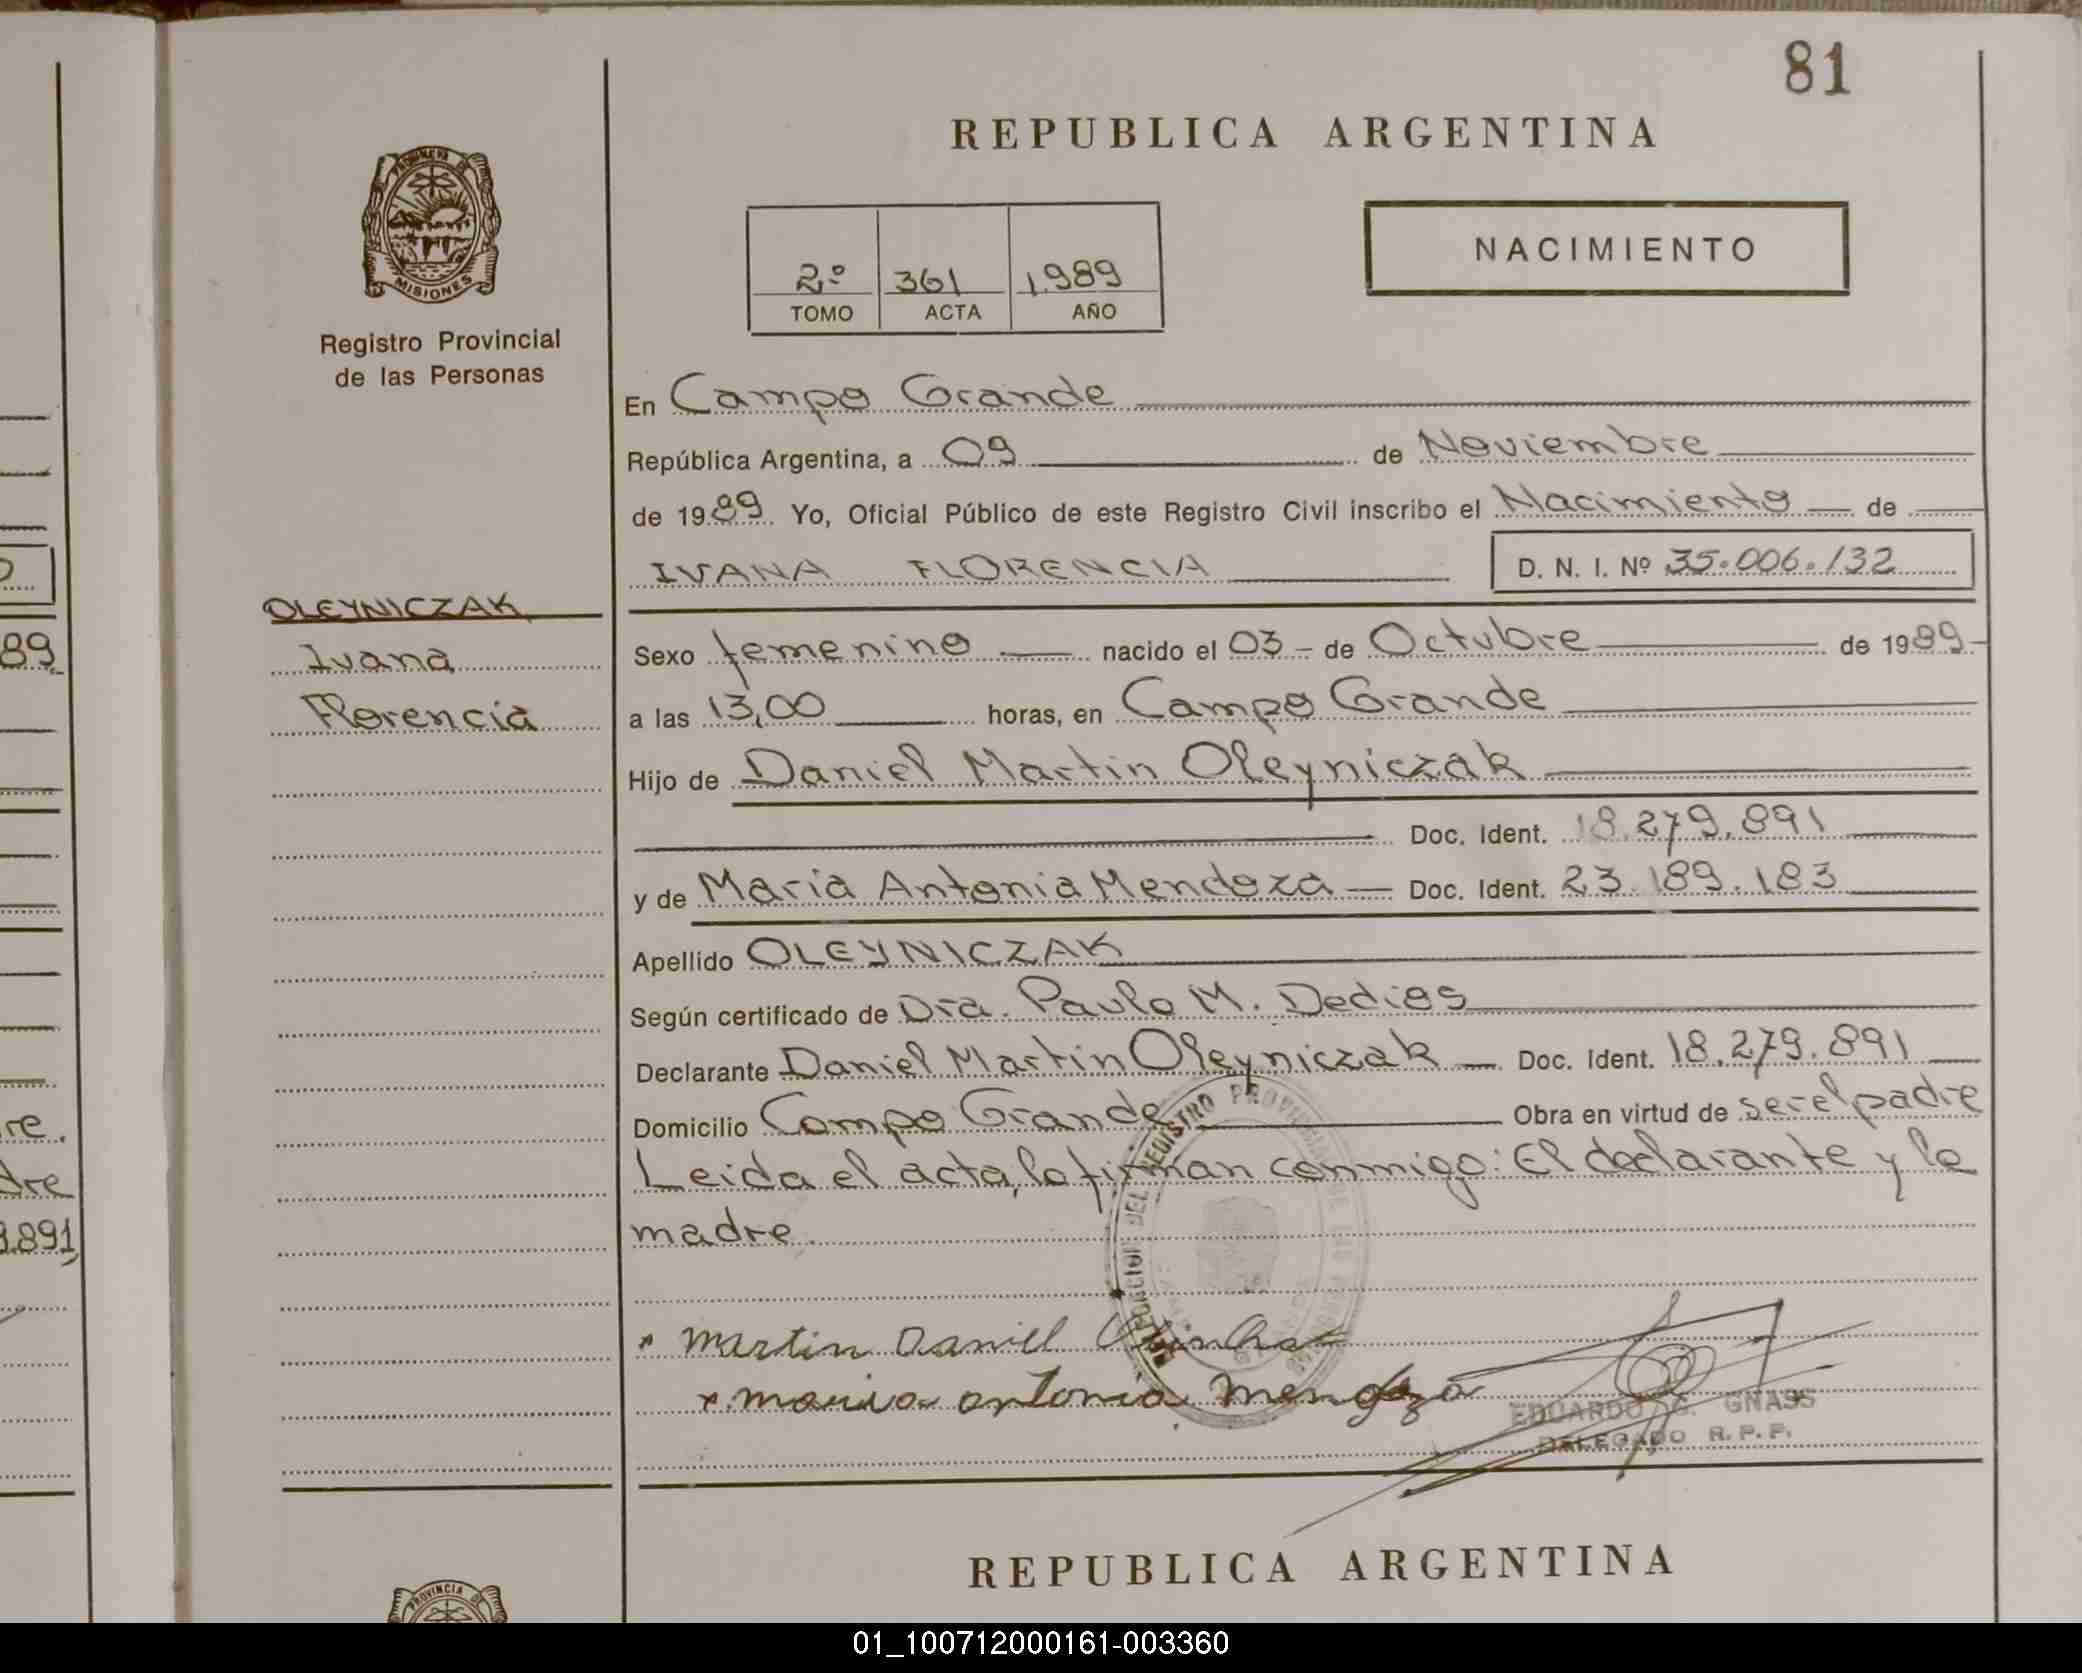 81
REPUBLICA ARGENTINA
PROVINCIA DE
MISIONES
Registro Provincial
de las Personas
2º 361 1.989
TOMO ACTA AÑO
NACIMIENTO
En Campo Grande
República Argentina, a 09 de Noviembre
de 1989. Yo, Oficial Público de este Registro Civil inscribo el Nacimiento de
IVANA FLORENCIA D. N. I. Nº 35.006.132
OLEYNICZAK
Ivana
Florencia
Sexo femenino nacido el 03 de Octubre de 1989
a las 13,00 horas, en Campo Grande
Hijo de Daniel Martin Oleyniczak
Doc. Ident. 18.279.891
y de Maria Antonia Mendoza Doc. Ident. 23.189.183
Apellido OLEYNICZAK
Según certificado de Dra. Paulo M. Dedios
Declarante Daniel Martin Oleyniczak Doc. Ident. 18.279.891
Domicilio Campo Grande Obra en virtud de ser el padre
Leida el acta, la firman conmigo: El declarante y la
madre.
Martin Daniel
maria antonia Mendoza
EDUARDO G. GNASS
DELEGADO R.P.F.
89
re.
dre
9.891
REPUBLICA ARGENTINA
PROVINCIA
01_100712000161-003360